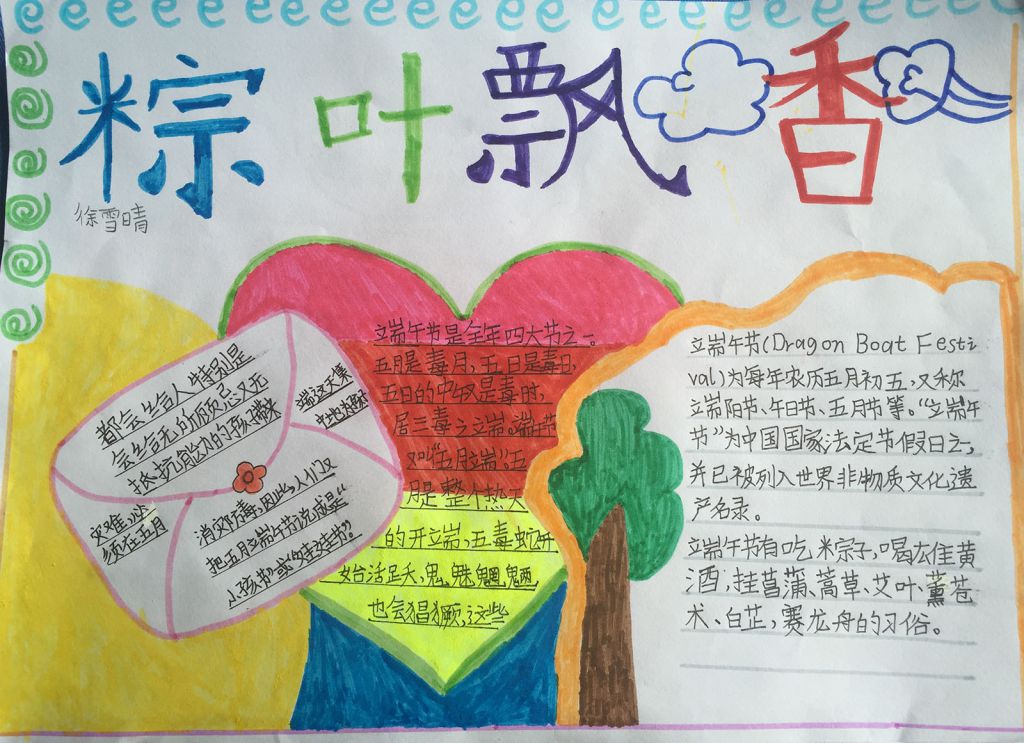 粽叶飘香
徐雪晴
端午节是全年四大节之一。
五月是毒月,五日是毒日,
五日的中午又是毒时,
居三毒之端。端午节
又叫“五月端”,五
月是整个热天
的开端,五毒蛇
始活跃,鬼魅魍魉,
也会猖獗,这些
都会给人特别是
会给无的烦忌又无
抵抗能力的孩带来
灾难,必
须在五月
端这天集
中地
消灾防毒,因此,人们又
把五月端午节说成是“
小孩节”或“娃娃节”。
端午节(Dragon Boat Festi
val)为每年农历五月初五,又称
端阳节、午日节、五月节等。“端午
节”为中国国家法定节假日之一,
并已被列入世界非物质文化遗
产名录。
端午节有吃粽子,喝雄黄
酒,挂菖蒲、蒿草、艾叶,薰苍
术、白芷,赛龙舟的习俗。